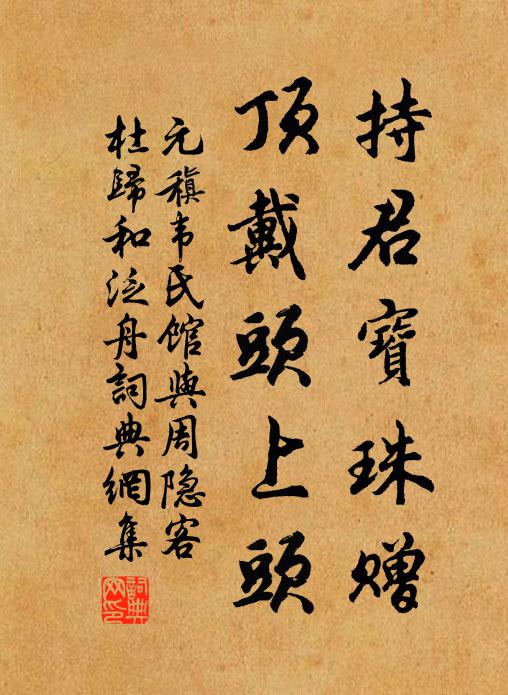 持君寶珠贈
頂戴頭上頭
元稹韦氏館與周隐客
杜歸和泛舟詞典網集
詞典
网印